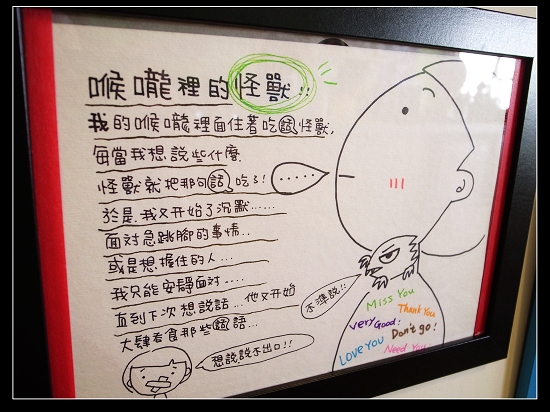 喉嚨裡的怪獸!!
我的喉嚨裡面住著吃話怪獸,
每當我想說些什麼
怪獸就把那句話吃了!
於是.我又開始了沉默......
面對急跳腳的事情..
或是想握住的人...
我只能安靜面對....
直到下次想說話...他又開始
大肆吞食那些話語...
想說說不出口!!
......
不準說!!
Miss You
Thank You
very Good!
Don't go!
LOVE YOU
Need You